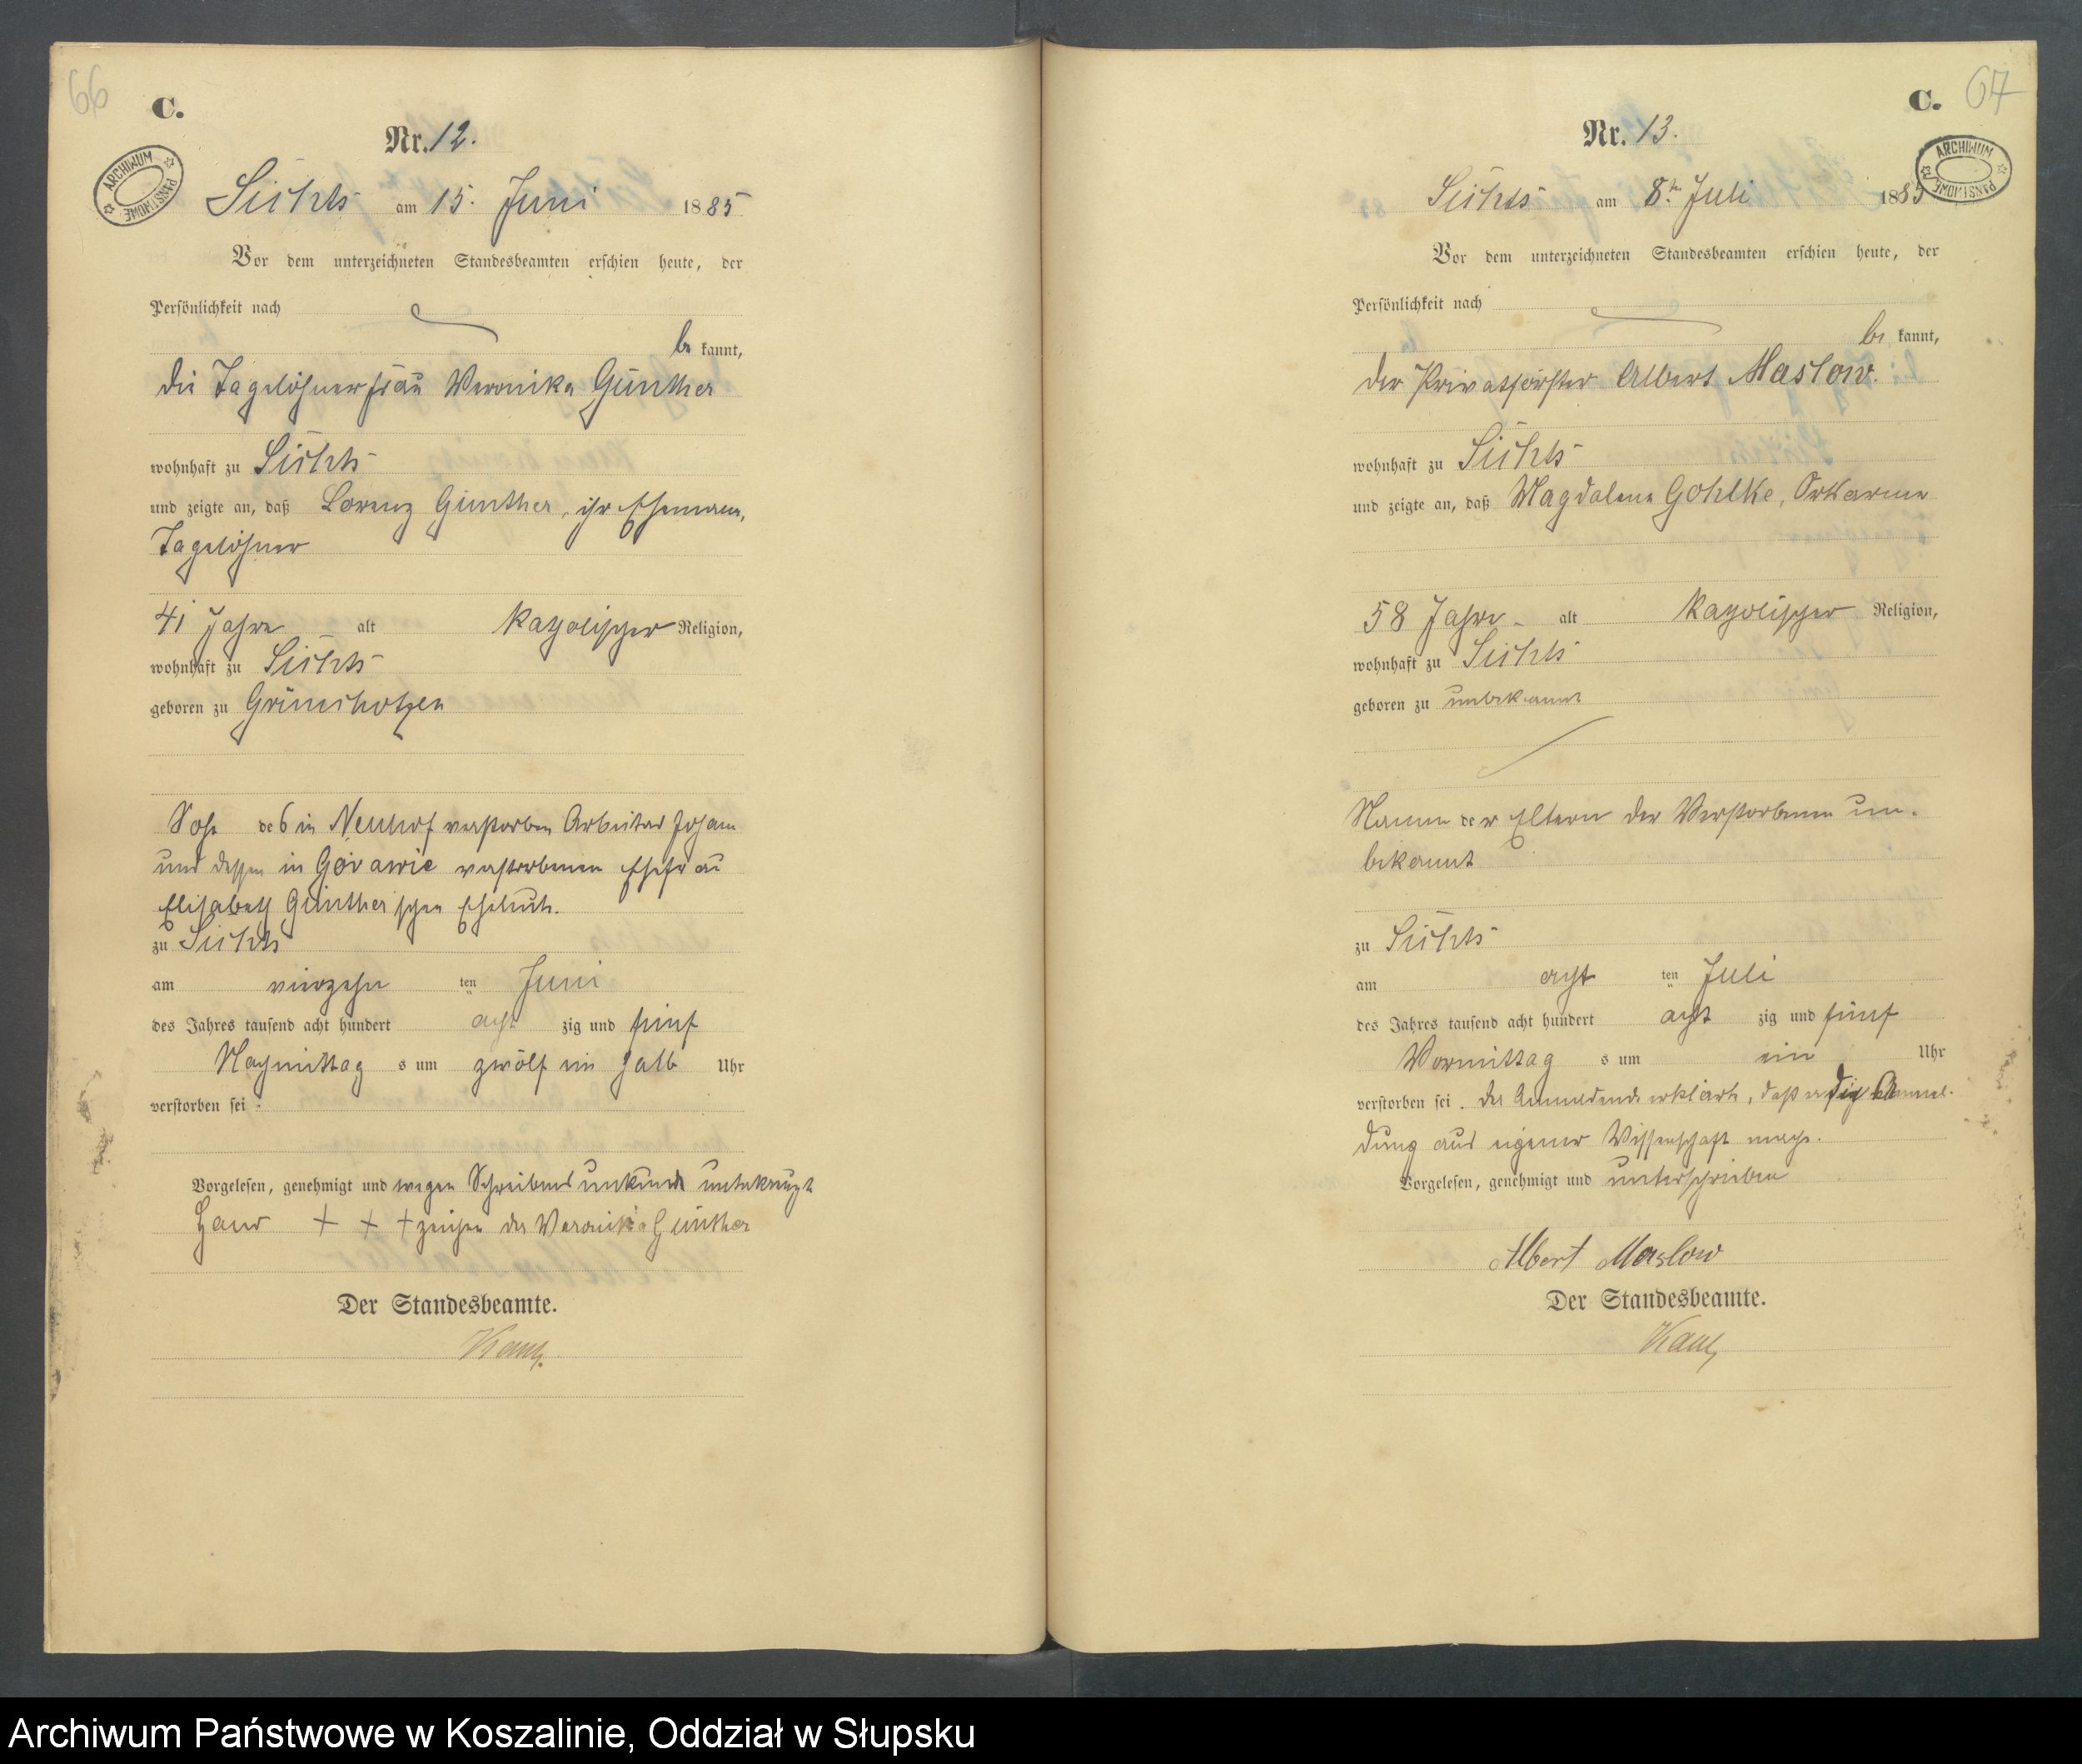 66
C.
ARCHIWUM PAŃSTWOWE
Nr. 12.
am 15. Juni 1885
Vor dem unterzeichneten Standesbeamten erschien heute, der
Persönlichkeit nach
be kannt,
die Tagelöhnerfrau Veronika Günther
wohnhaft zu
und zeigte an, daß Lorenz Günther, ihr Ehemann,
Tagelöhner
41 Jahre alt katholischer Religion,
wohnhaft zu
geboren zu
Sohn des in Neuhof verstorben Arbeiter Johann
und dessen in verstorbenen Ehefrau
Elisabeth Günther'schen Eheleute.
zu
am vierzehn ten Juni
des Jahres tausend acht hundert acht zig und fünf
Nachmittag s um zwölf ein halb Uhr
verstorben sei.
Vorgelesen, genehmigt und wegen Schreibensunkunde unterkreuzt
Hand + + + zeichen der Veronika Günther
Der Standesbeamte.
67
C.
ARCHIWUM PAŃSTWOWE
Nr. 13.
am 8. Juli 1885
Vor dem unterzeichneten Standesbeamten erschien heute, der
Persönlichkeit nach
be kannt,
der Privatförster Albert Maslow.
wohnhaft zu
und zeigte an, daß Magdalena Gohlke, Ortsarme
58 Jahre alt katholischer Religion,
wohnhaft zu
geboren zu unbekannt
Namen der Eltern der Verstorbenen un-
bekannt
zu
am acht ten Juli
des Jahres tausend acht hundert acht zig und fünf
Vormittag s um ein Uhr
verstorben sei. Der Anmeldende erklärte, daß er die Anmel-
dung aus eigener Wissenschaft mache.
Vorgelesen, genehmigt und unterschrieben
Albert Maslow
Der Standesbeamte.
Archiwum Państwowe w Koszalinie, Oddział w Słupsku